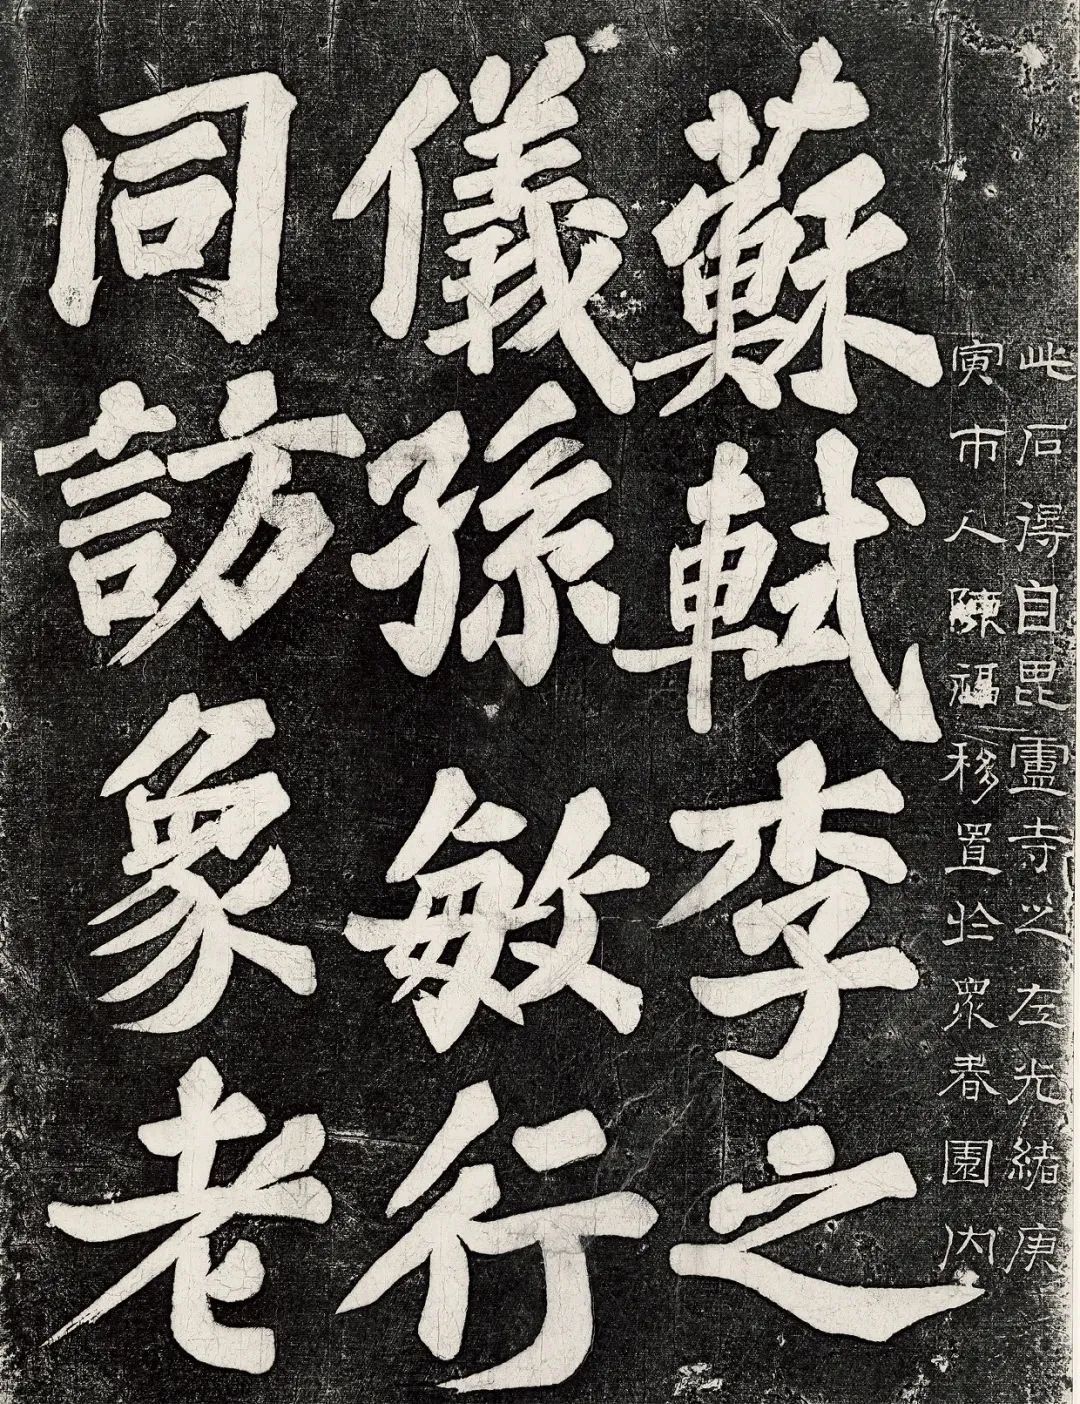 此石得自毘盧寺之左光緒庚
寅市人陳福移置於眾春園內
蘇軾李之
儀孫敏行
同訪象老